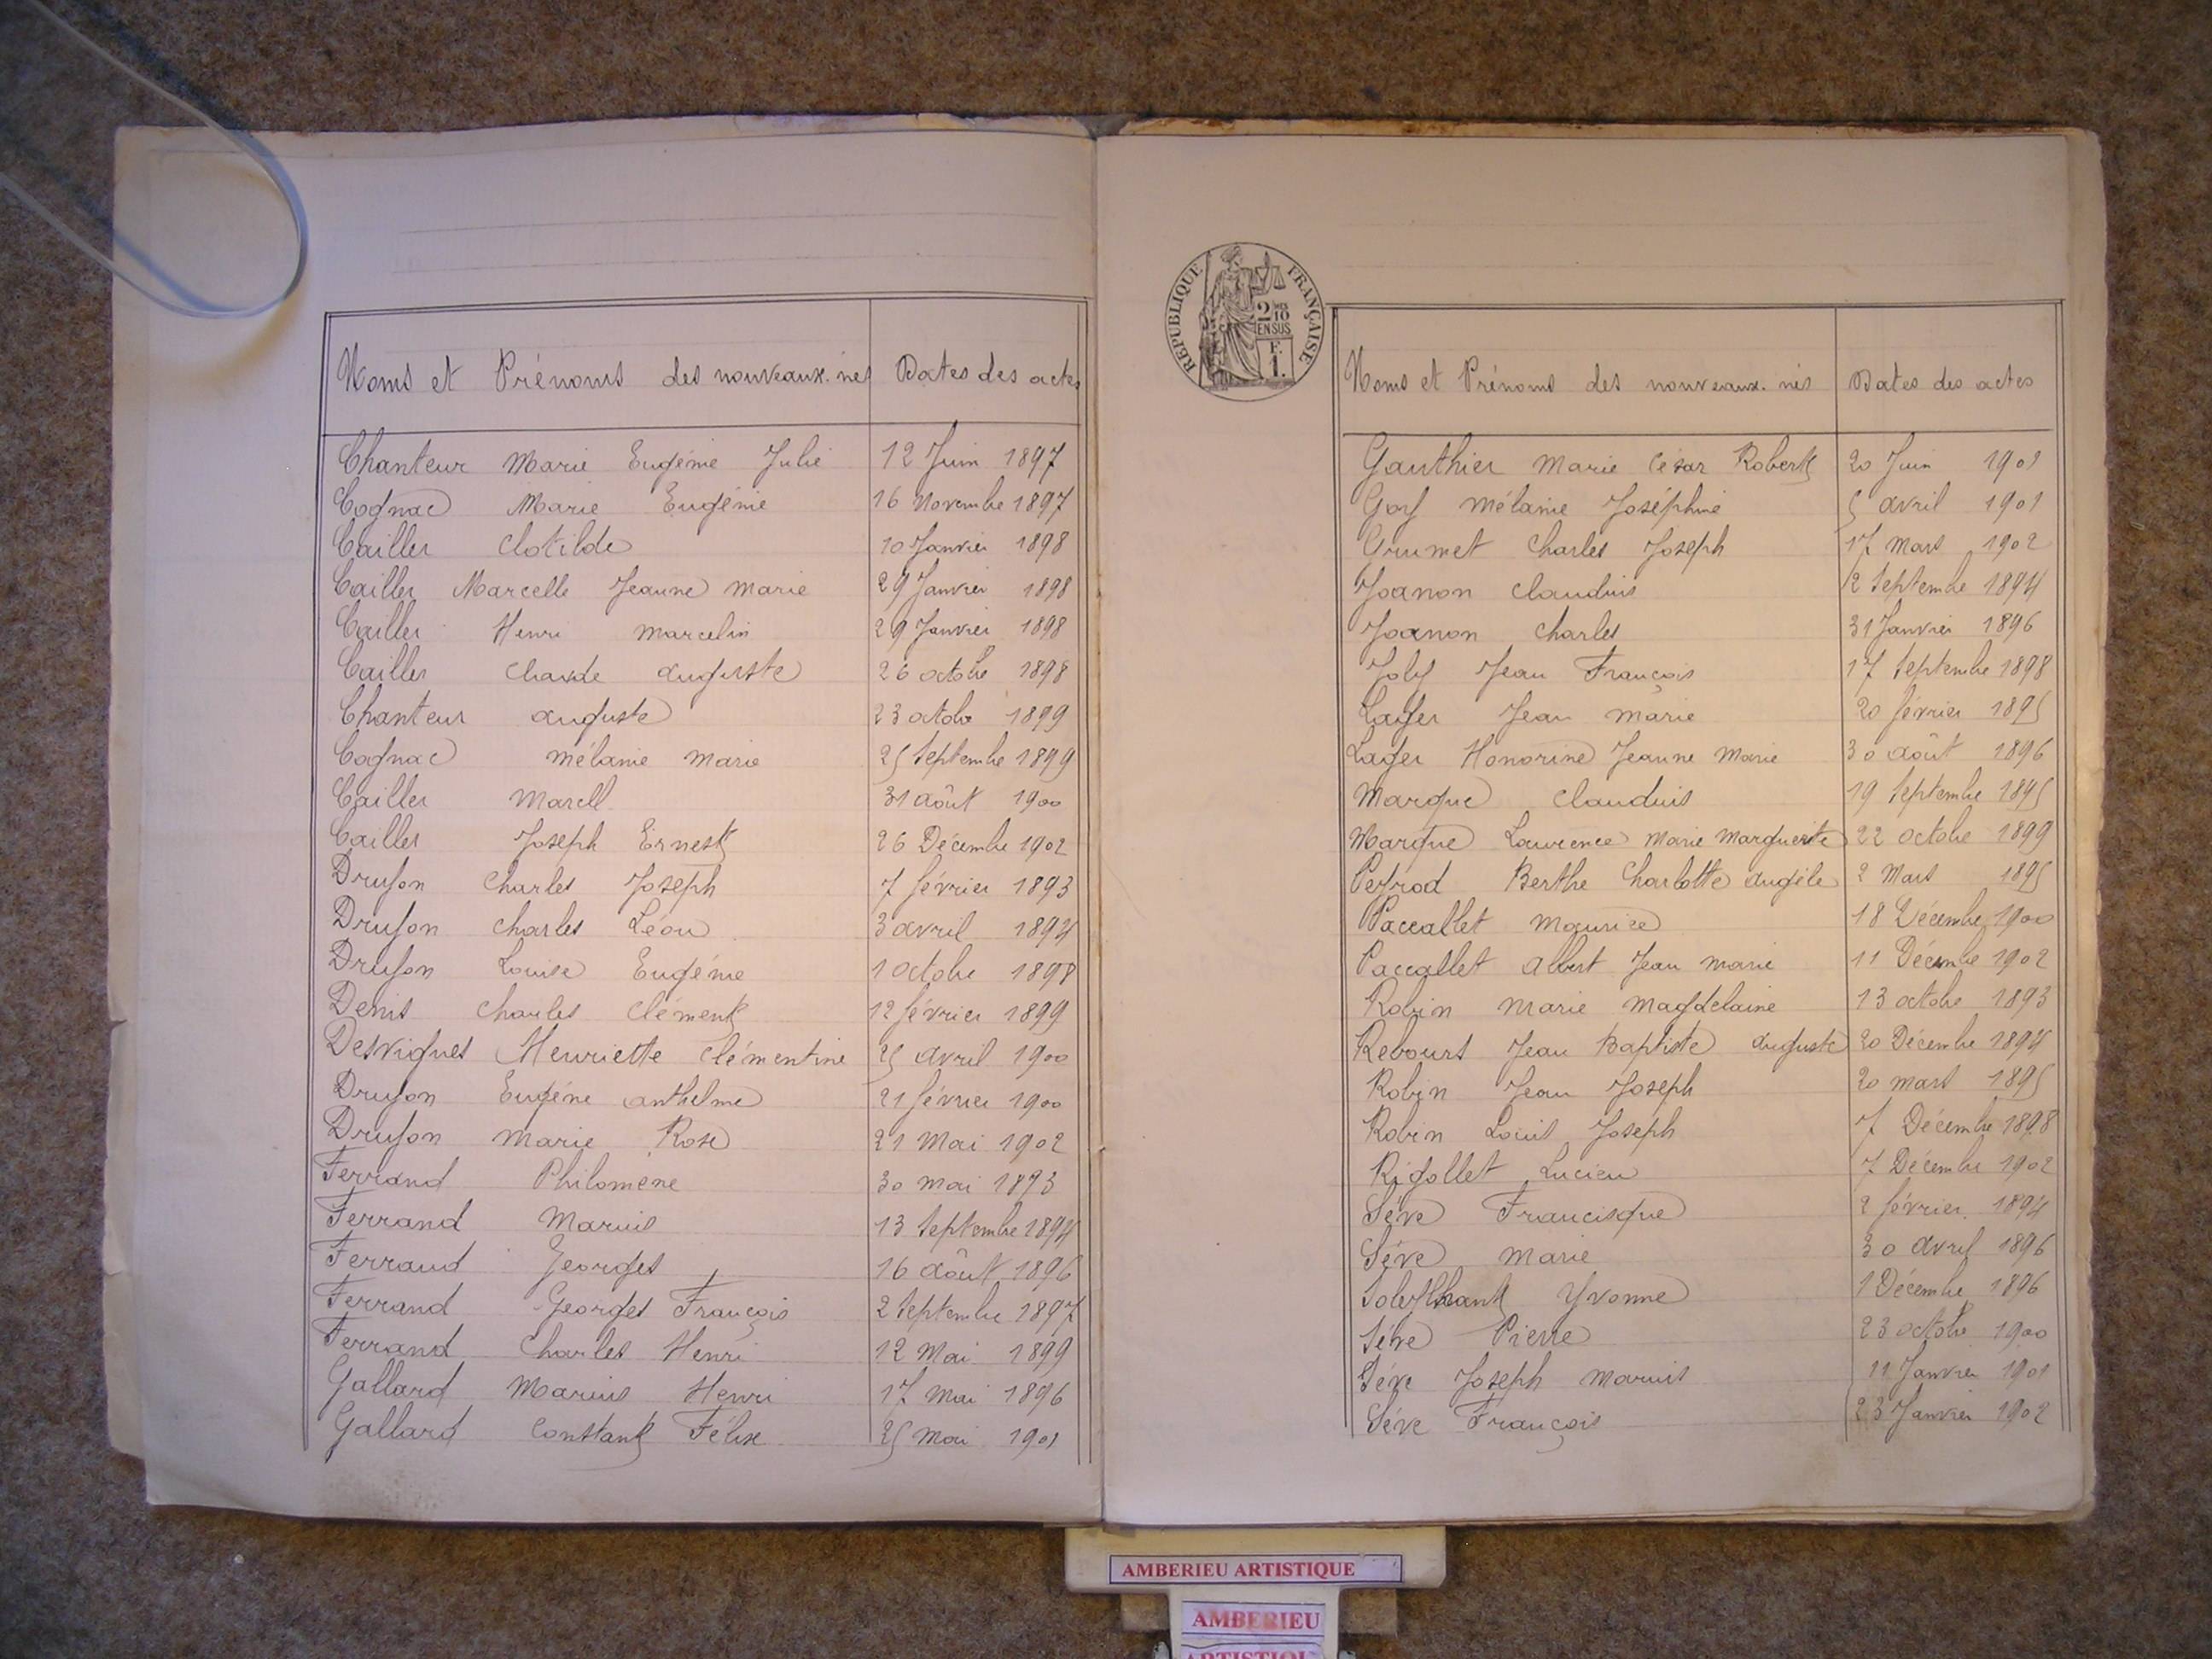 Noms et Prénoms des nouveaux-nés Dates des actes
Chanteur Marie Eugénie Julie 12 Juin 1897
Cognac Marie Eugénie 16 Novembre 1897
Cailler Clotilde 10 Janvier 1898
Cailler Marcelle Jeanne Marie 29 Janvier 1898
Cailler Henri Marcelin 29 Janvier 1898
Cailler Claude Auguste 26 octobre 1898
Chanteur Auguste 23 octobre 1899
Cognac Mélanie Marie 25 Septembre 1899
Cailler Marcell 31 Août 1900
Cailler Joseph Ernest 26 Décembre 1902
Drufon Charles Joseph 7 février 1893
Drufon Charles Léon 3 avril 1894
Drufon Louise Eugénie 1 octobre 1898
Denis Charles Clément 12 février 1899
Desvignes Henriette Clémentine 25 avril 1900
Drufon Eugéne Anthelme 21 février 1900
Drufon Marie Rose 21 Mai 1902
Ferrand Philomène 30 mai 1893
Ferrand Marius 13 Septembre 1894
Ferrand Georges 16 Août 1896
Ferrand Georges François 2 Septembre 1897
Ferrand Charles Henri 12 Mai 1899
Gallard Marius Henri 17 Mai 1896
Gallard Constant Félix 25 Mai 1901
RÉPUBLIQUE FRANÇAISE
2/10 EN SUS
F. 1.
Noms et Prénoms des nouveaux-nés Dates des actes
Gauthier Marie César Robert 20 Juin 1901
Goy Mélanie Joséphine 5 avril 1901
Grumet Charles Joseph 17 Mars 1902
Joanon Claudius 12 Septembre 1894
Joanon Charles 31 Janvier 1896
Joly Jean François 17 Septembre 1898
Lager Jean Marie 20 février 1895
Lager Honorine Jeanne Marie 30 Août 1896
Marque Claudius 19 Septembre 1895
Marque Laurence Marie Marguerite 22 octobre 1899
Peyrod Berthe Charlotte Angèle 2 Mars 1895
Paccallet Maurice 18 Décembre 1900
Paccallet Albert Jean Marie 11 Décembre 1902
Robin Marie Magdelaine 13 octobre 1893
Rebours Jean Baptiste Auguste 20 Décembre 1894
Robin Jean Joseph 20 mars 1895
Robin Louis Joseph 7 Décembre 1898
Rigollet Lucien 7 Décembre 1902
Séve Francisque 2 février 1894
Séve Marie 30 Avril 1896
Yvonne 1 Décembre 1896
Séve Pierre 23 octobre 1900
Séve Joseph Marius 11 Janvier 1901
Séve François 23 Janvier 1902
AMBERIEU ARTISTIQUE
AMBERIEU